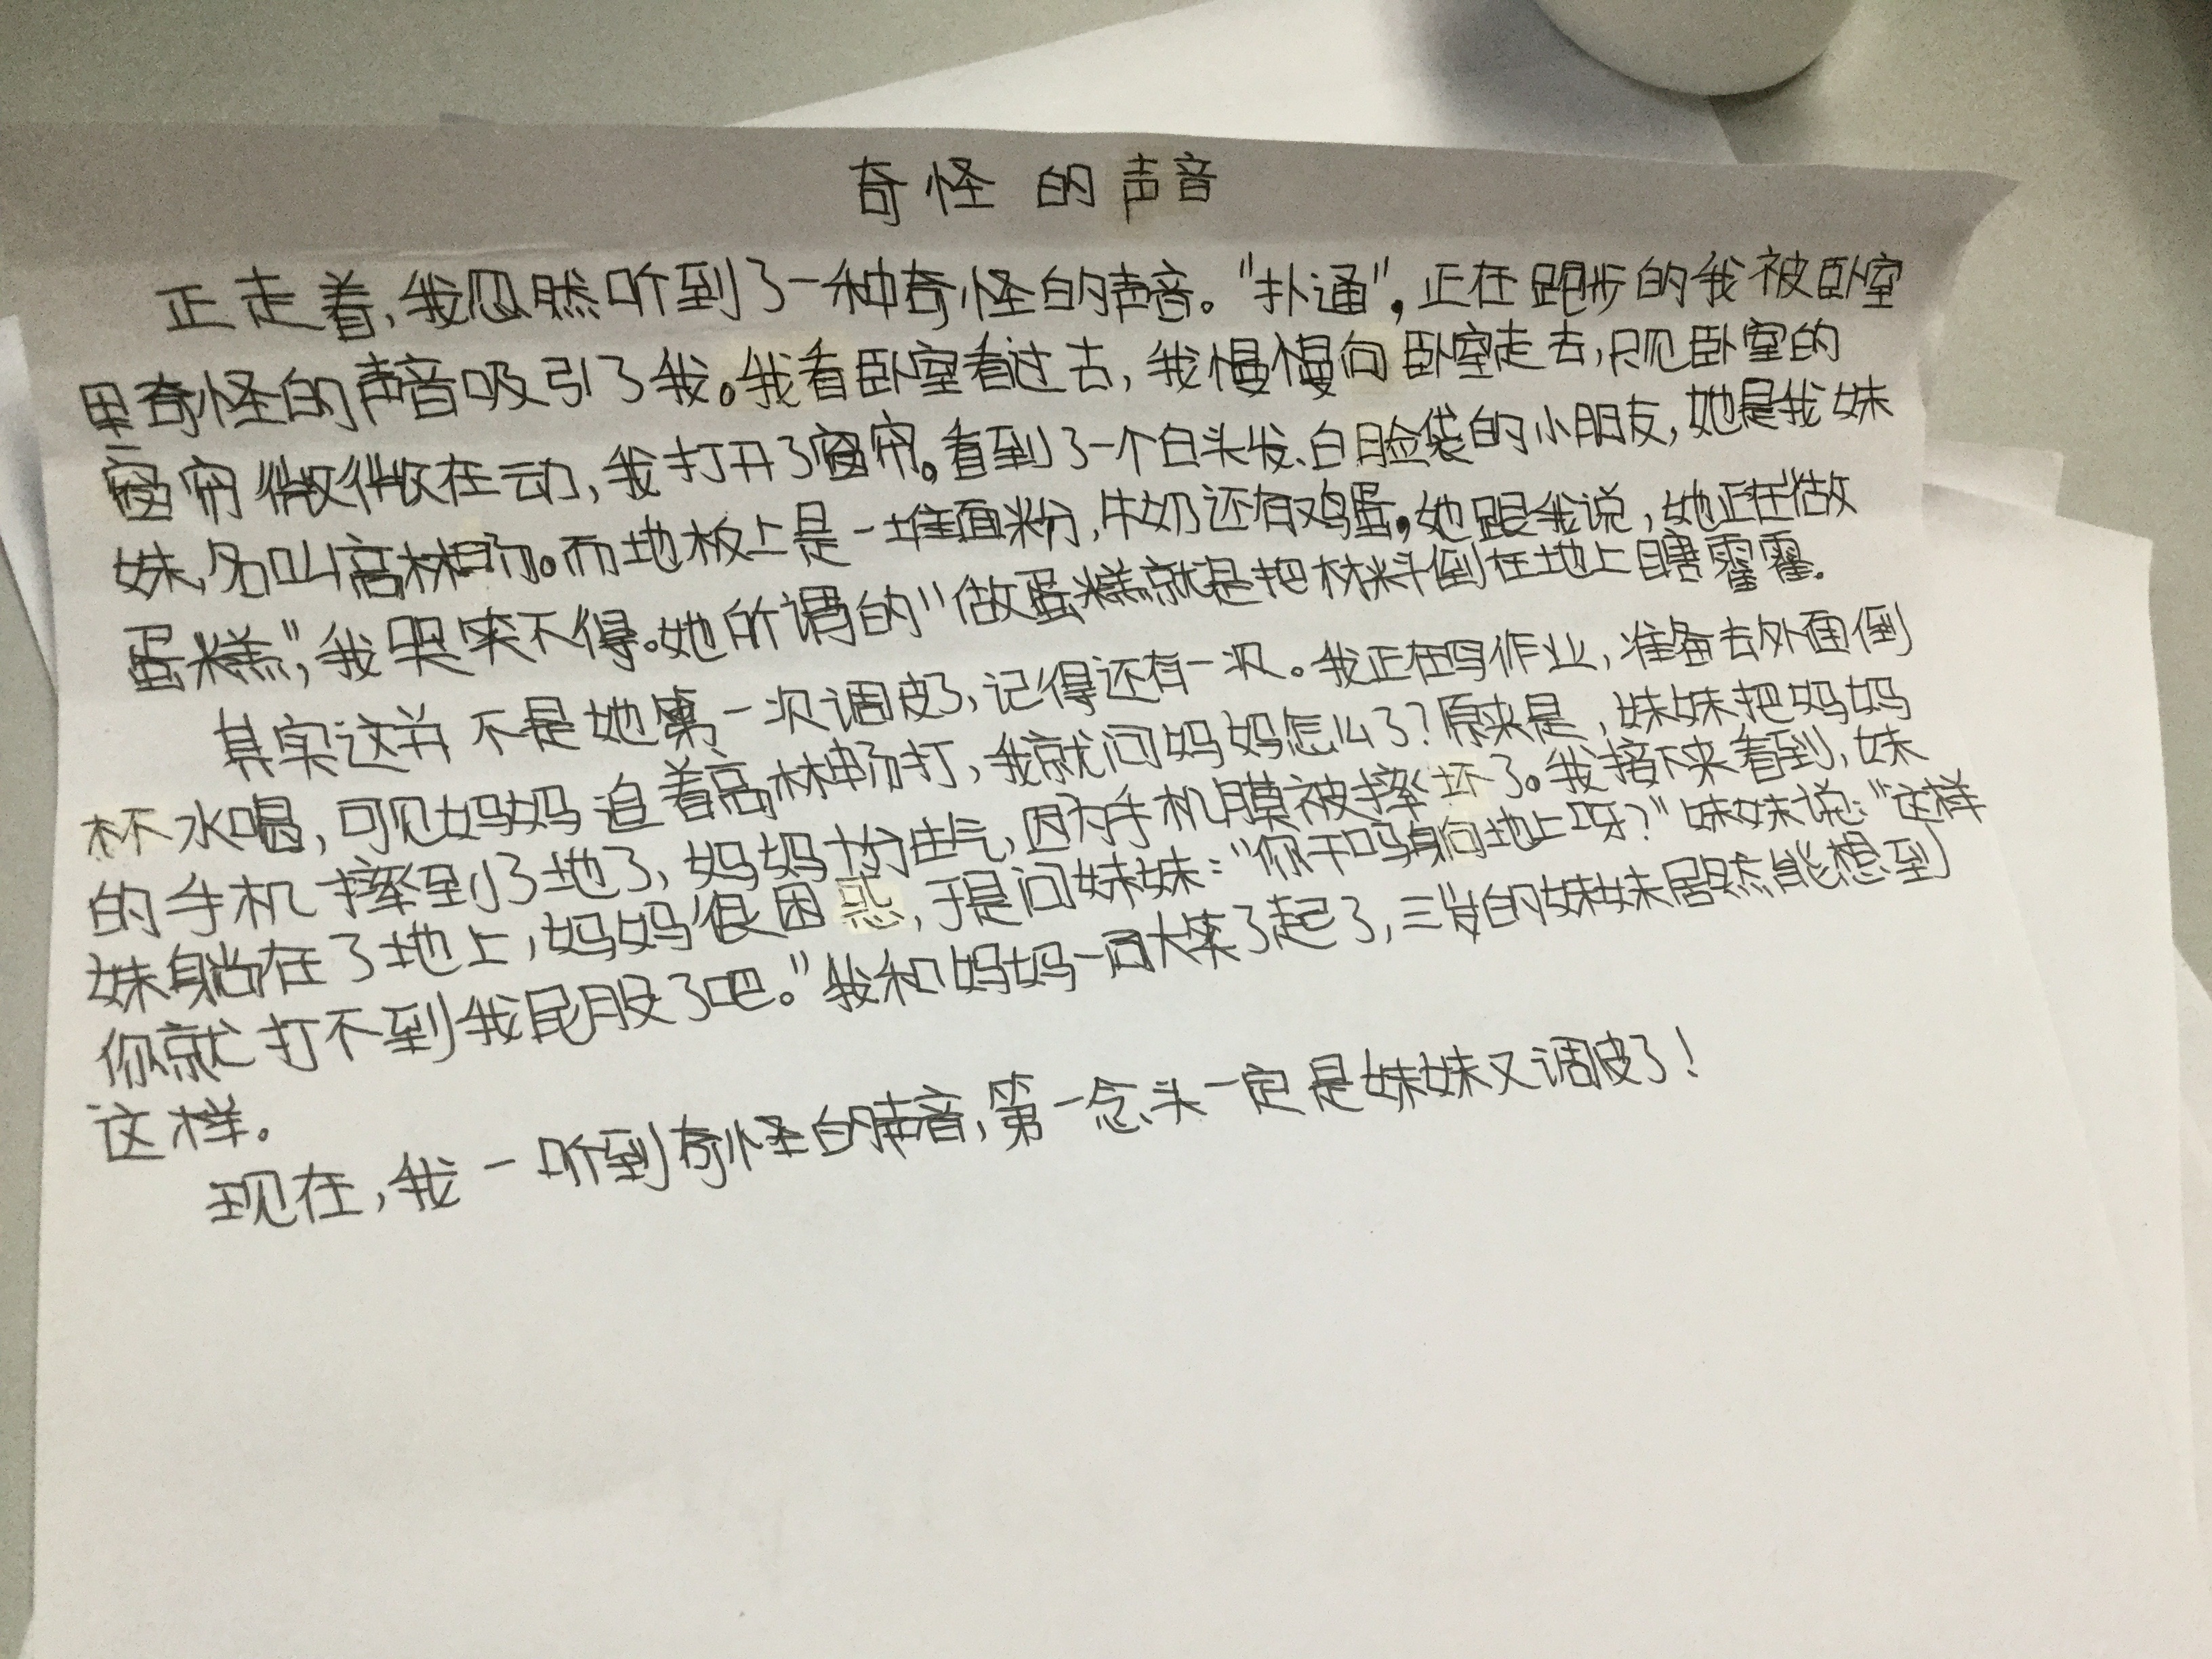 奇怪的声音
正走着，我忽然听到了一种奇怪的声音。“扑通”，正在跑步的我被卧室
里奇怪的声音吸引了我。我看卧室看过去，我慢慢向卧室走去，只见卧室的
窗帘微微在动，我打开了窗帘。看到了一个白头发、白脸袋的小朋友，她是我妹
妹，名叫高林畅。而地板上是一堆面粉，牛奶还有鸡蛋，她跟我说，她正在做
蛋糕”，我哭笑不得。她所谓的“做蛋糕就是把材料倒在地上瞎霍霍。
其实这并不是她第一次调皮了，记得还有一次。我正在写作业，准备去外面倒
杯水喝，可见妈妈追着高林畅打，我就问妈妈怎么了？原来是，妹妹把妈妈
的手机摔到了地了，妈妈十分生气，因为手机膜被摔坏了。我接下来看到，妹
妹躺在了地上，妈妈很困惑，于是问妹妹：“你干吗躺地上呀？”妹妹说：“这样
你就打不到我屁股了吧。”我和妈妈一同大笑了起了，三岁的妹妹居然能想到
这样。
现在，我一听到奇怪的声音，第一念头一定是妹妹又调皮了！